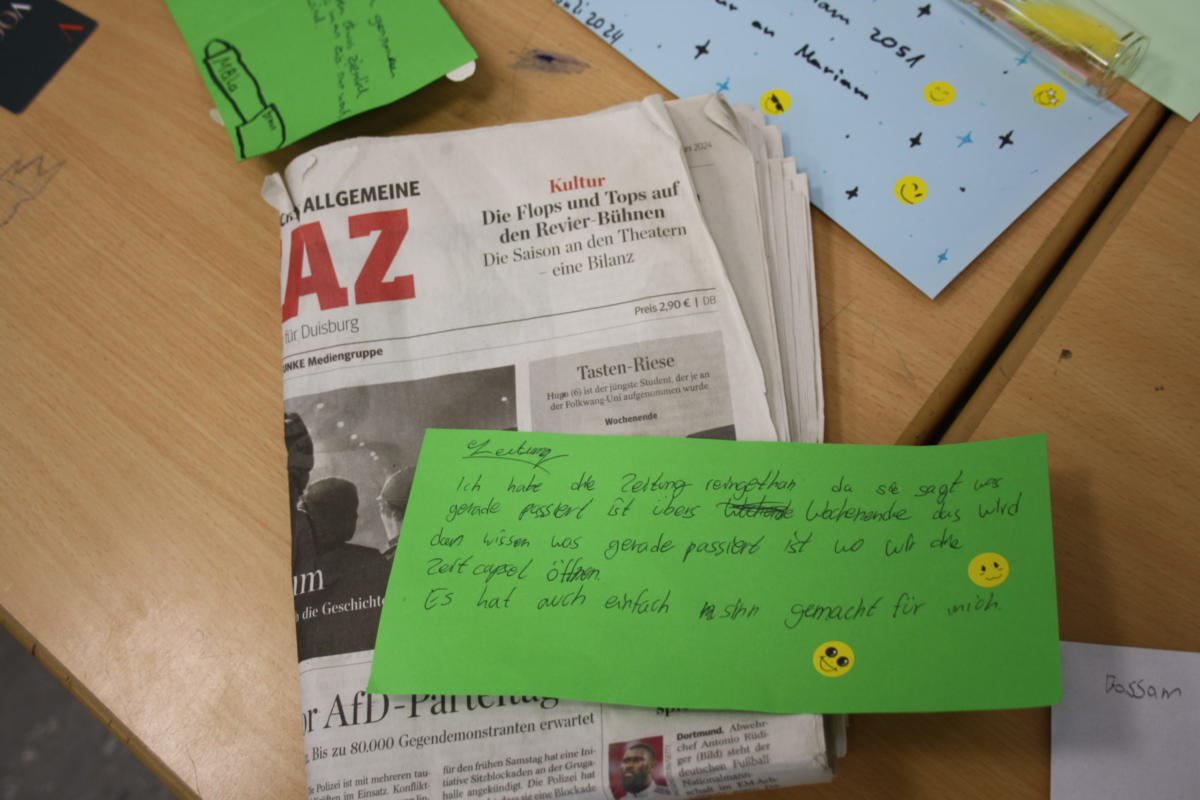 VOG
MBLA
uli 2024
iam 2051
an Mariam
ALLGEMEINE
AZ
für Duisburg
UNKE Mediengruppe
Kultur
Die Flops und Tops auf
den Revier-Bühnen
Die Saison an den Theatern
– eine Bilanz
2024
Preis 2,90 € | DB
Tasten-Riese
Hugo (6) ist der jüngste Student, der je an
der Folkwang-Uni aufgenommen wurde
Wochenende
um
die Geschichte
Zeitung
Ich habe die Zeitung reingethan da sie sagt was
gerade passiert ist übers Wochenende das wird
dan wissen was gerade passiert ist wo wir die
Zeit capsel öffnen.
Es hat auch einfach sinn gemacht für mich.
or AfD-Parteitag
Bis zu 80.000 Gegendemonstranten erwartet
Polizei ist mit mehreren tau-
Kräften im Einsatz. Konflikt-
für den frühen Samstag hat eine Ini-
tiative Sitzblockaden an der Gruga-
halle angekündigt. Die Polizei hat
dass sie eine Blockade
Dortmund. Abwehr-
chef Antonio Rüdi-
ger (Bild) steht der
deutschen Fußball
Nationalmann-
schaft im EM-Ach-
Bossam